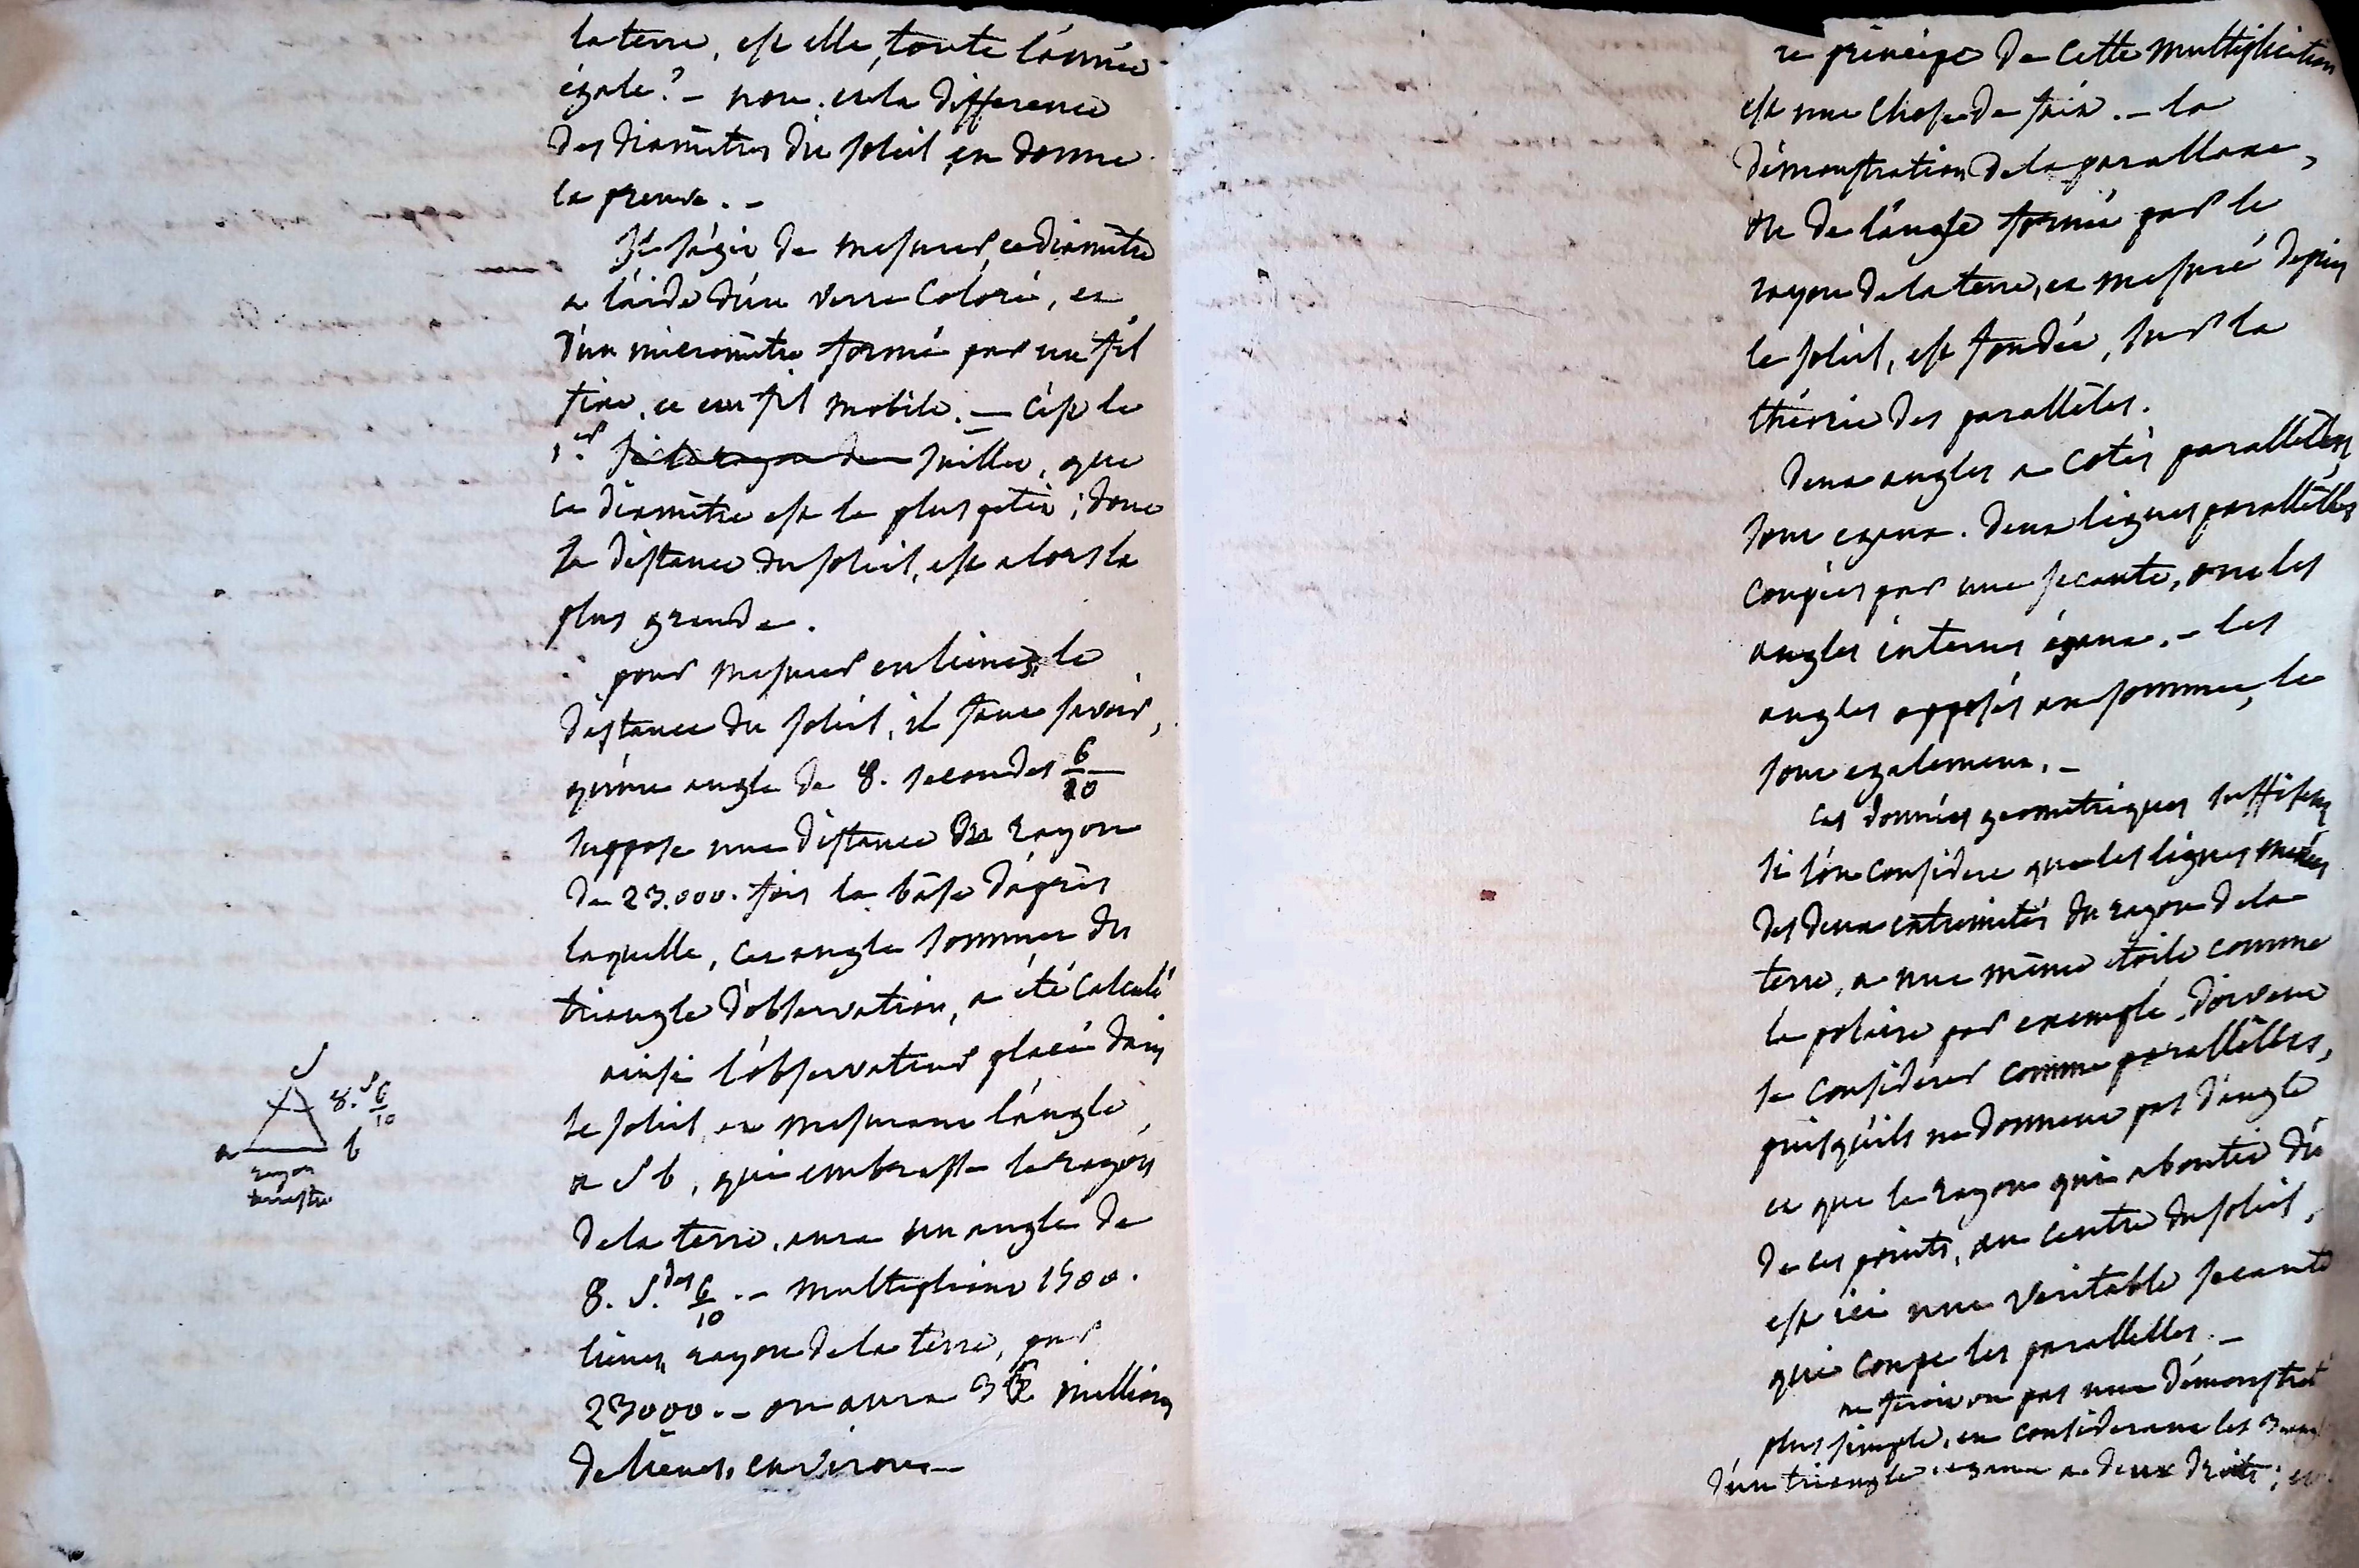 la terre, est elle, toute l'année
égale? – non. et la difference
des diamêtres du soleil en donne
la preuve. –
Il s'agit de mesurer, ce diamêtre
a l'aide d'un verre coloré, et
d'un micromêtre formé par un fil
fixe, et un fil mobile. – c'est le
1.er juillet, que
ce diamêtre est le plus petit; donc
la distance du soleil, est alors la
plus grande.
pour mesurer en lieues, la
distance du soleil, il faut savoir,
qu'une angle de 8. secondes 6/10
suppose une distance du rayon
de 23.000. fois la bâse d'après
laquelle, cet angle sommet du
triangle d'observation, a été calculé
ainsi l'observateur placé dans
le soleil, et mesurant l'angle
a S b, qui embrasse le rayon
de la terre, aura un angle de
8. S.des 6/10. – multipliant 1500.
lieues, rayon de la terre, par
23000. – on aura millions
de lieues, environ –
S
8. S 6/10
a b
rayon
terrestre
re principe de cette multiplication
est une chose de fait. – la
démonstration de la parallaxe,
ou de l'angle formé par le
rayon de la terre, et mesuré depuis
le soleil, est fondée, sur la
théorie des parallêles.
Deux angles a cotés parallêles,
sont egaux. Deux lignes parallêlles
coupées par une secante, ont les
angles internes égaux. – les
angles opposés au sommet, le
sont egalement. –
ces données geometriques suffisent
si l'on considere que les lignes menées
des deux extremités du rayon de la
terre, a une même etoile comme
la polaire par exemple, doivent
se considerer comme parallêlles,
puisqu'ils ne donnent pas d'angle
et que le rayon qui aboutit d'u
de ces points, au centre du soleil,
est ici une veritable secante
qui coupe les parallelles. –
ne feroit on pas une démonstrat
plus simple, en considerant les 3
d'un triangle egaux a deux droits; et